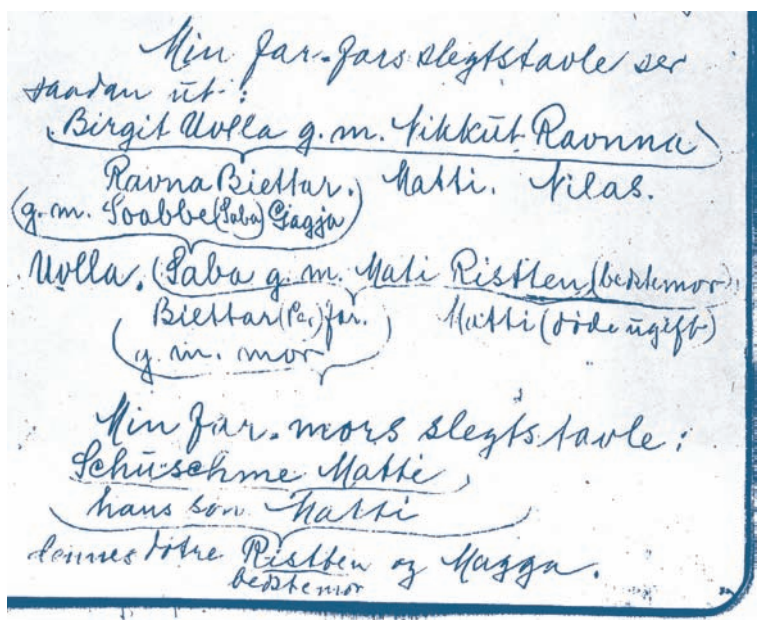 Min far-fars slegtstavle ser
saadan ut:
Birgit Uvlla g.m. Nikkut Ravnna
Ravna Biettar. Matti. Nilas.
(g.m. Soabbe (Saba) Gagja
Uvlla. (Saba g.m. Mati Ristten (bedstemor).
Biettar (Per) far. Matti (døde ugift)
(g.m. mor)
Min far-mors slegtstavle:
Schuschme Matti
hans søn Matti
dennes døtre Ristten og Magga.
bedstemor